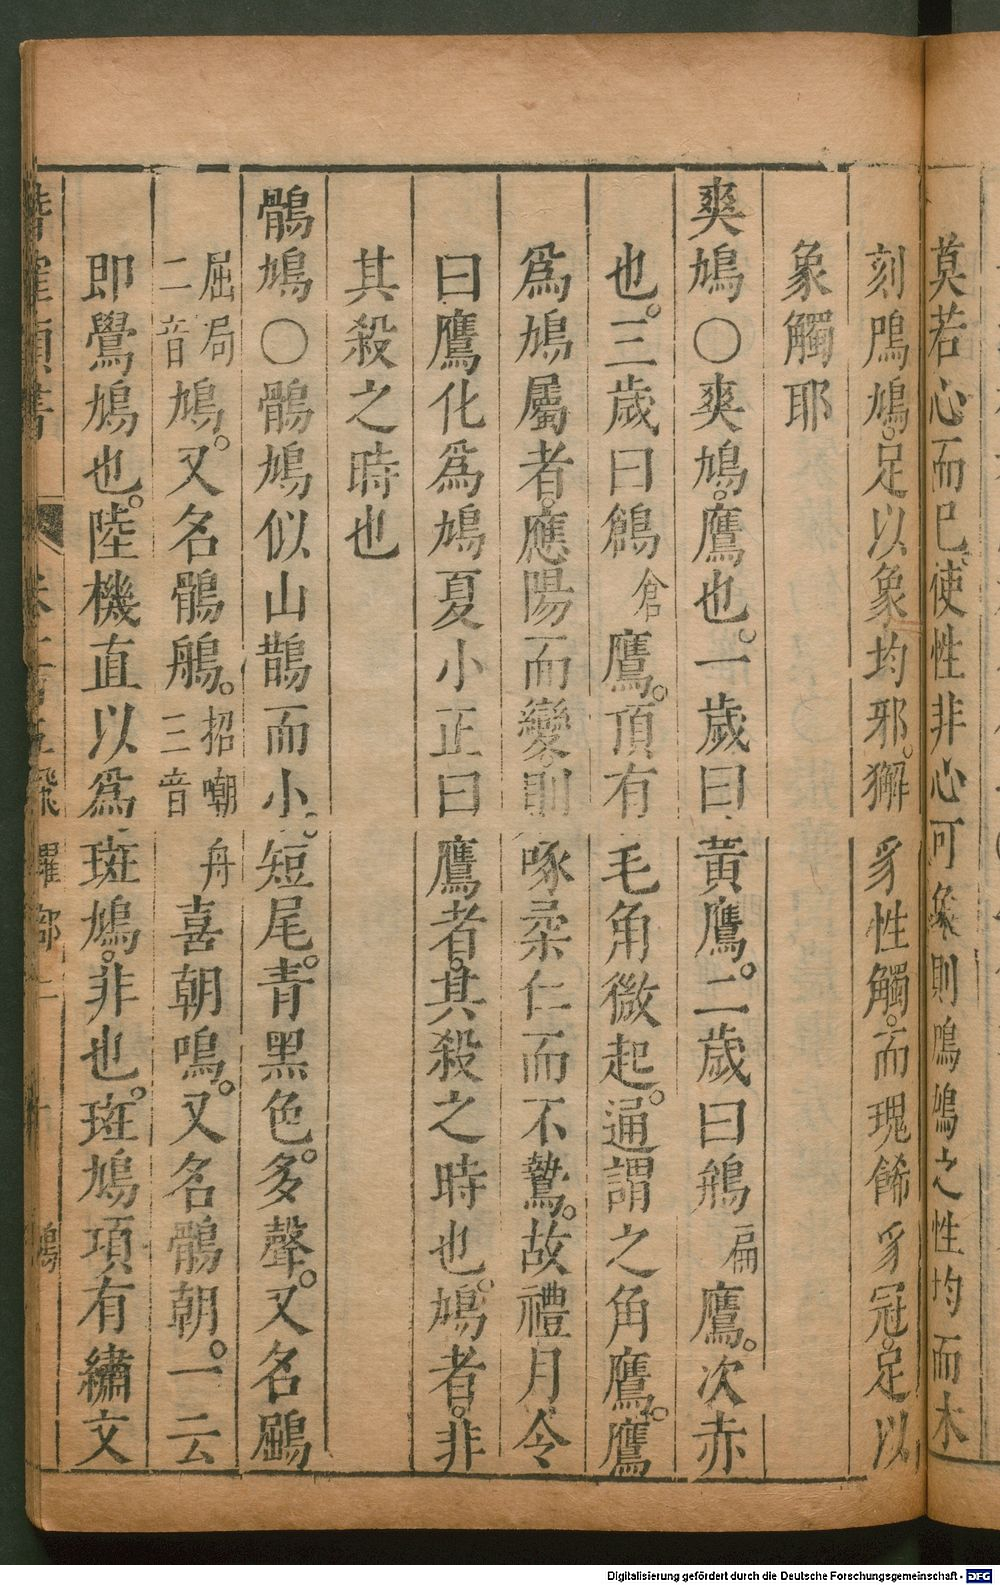 莫若心而已使性非心可象則鳲鳩之性均而木
刻鳲鳩。足以象均邪。獬豸性觸。而瑰飾豸冠。足以
象觸耶
爽鳩○爽鳩。鷹也。一歲曰黃鷹。二歲曰鴘扁鷹。次赤
也。三歲曰鶬倉鷹。頂有毛角微起。通謂之角鷹。鷹
爲鳩屬者。應陽而變。則啄柔仁而不鷙。故禮月令
曰鷹化爲鳩夏小正曰鷹者。其殺之時也。鳩者。非
其殺之時也
鶻鳩○鶻鳩似山鵲而小。短尾。青黑色。多聲。又名鶌
屈局二音鳩。又名鶻鵃。招嘲舟三音喜朝鳴。又名鶻朝。一云
即鷽鳩也。陸機直以爲斑鳩。非也。斑鳩項有繡文
潛確類書
卷一百五 飛躍部二
鳩
Digitalisierung gefördert durch die Deutsche Forschungsgemeinschaft - DFG